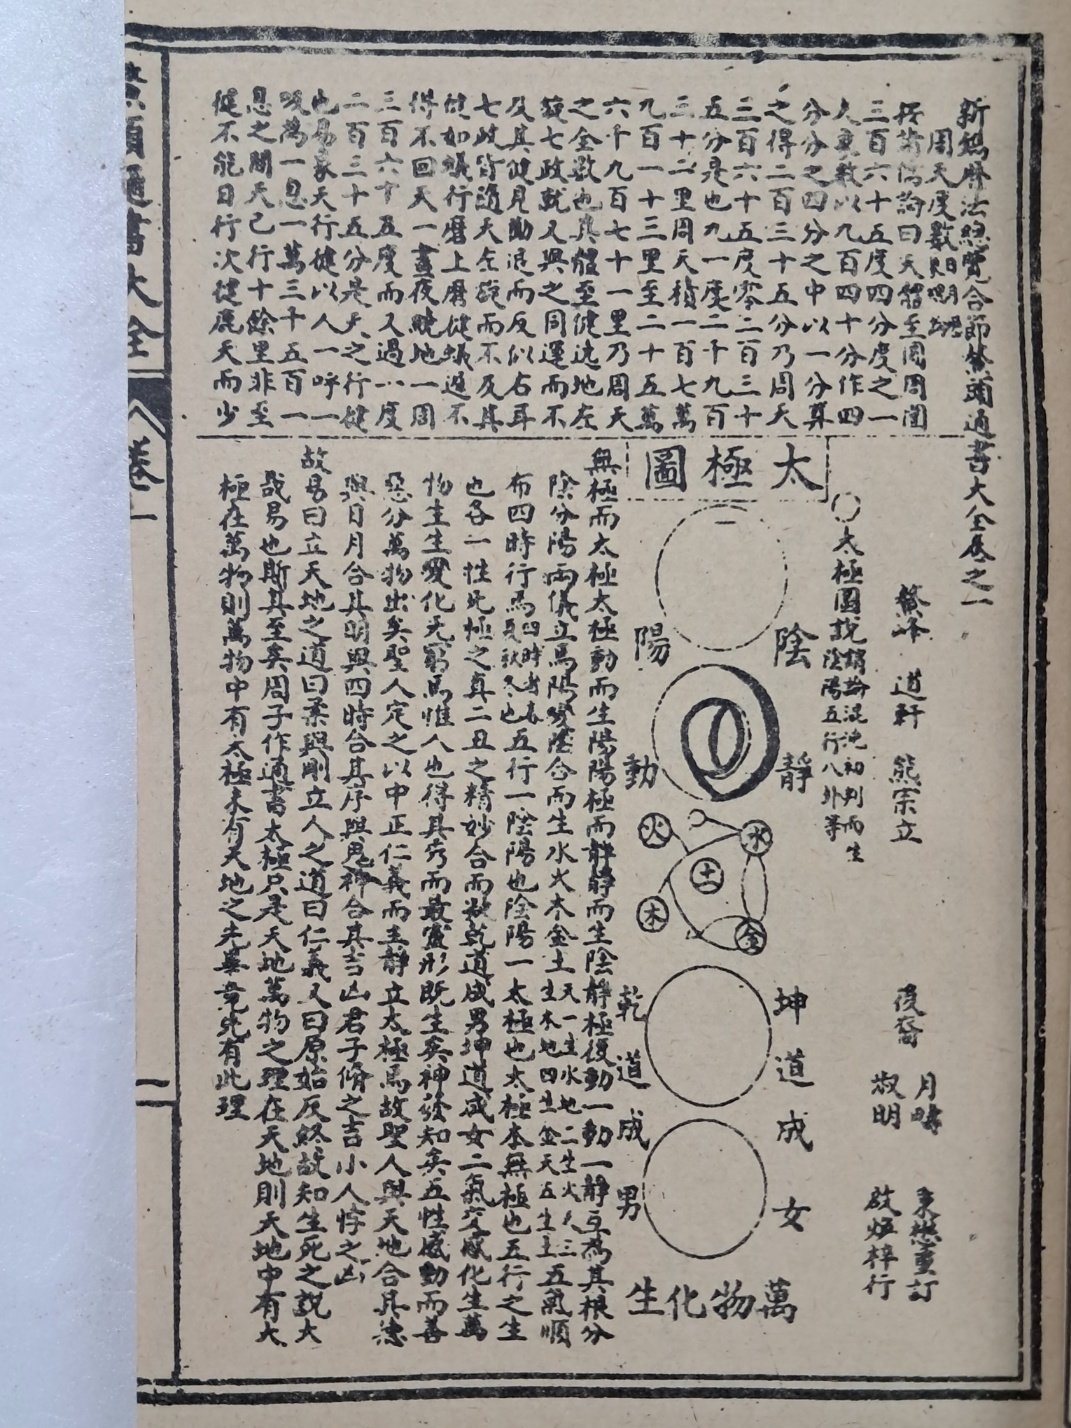 新鐫曆法總覽合節鰲頭通書大全卷之一
鰲峰 道軒 熊宗立
後裔 月疇 叔明
東懋重訂
啟炬梓行
周天度數
按諸儒論曰天體至圓周圍
三百六十五度四分度之一
人衰數以九百四十分作四
分分之四分之中以一分算
之得二百三十五分乃周天
三百六十五度零二百三十
五分是也九一度二千九百
三十二里周天積一百七萬
九百一十三里至二十五萬
六千九百七十一里乃周天
之全數也其體至健遶地左
旋七政就又與之同運而不
及其健見勤退而反似右耳
七政皆隨天左旋而不及其
健如蟻行磨上磨健蟻遲不
得不回天一晝夜曉地一周
三百六十五度而又過一度
二百三十五分是天之行健
也易象天行健以人一呼一
吸為一息一萬三千五百一
息之間天已行十餘里非至
健不能日行次健麗天而少
太極圖
陰靜
陽動
火 水 土 木 金
坤道成女
乾道成男
萬物化生
○太極圖說 謂論混沌初判而生陰陽五行八卦等
無極而太極太極動而生陽陽極而靜靜而生陰靜極復動一動一靜互為其根分
陰分陽兩儀立焉陽變陰合而生水火木金土 天一生水地二生火天三生木地四生金天五生土 五氣順
布四時行焉 四時者春夏秋冬也 五行一陰陽也陰陽一太極也太極本無極也五行之生
也各一性無極之真二五之精妙合而凝乾道成男坤道成女二氣交感化生萬
物生生變化無窮焉惟人也得其秀而最靈形既生矣神發知矣五性感動而善
惡分萬物出矣聖人定之以中正仁義而主靜立太極焉故聖人與天地合其德
與日月合其明與四時合其序與鬼神合其吉凶君子脩之吉小人悖之凶
故易曰立天地之道曰柔與剛立人之道曰仁義又曰原始反終故知生死之說大
哉易也斯其至矣周子作通書太極只是天地萬物之理在天地則天地中有太
極在萬物則萬物中有太極未有天地之先畢竟先有此理
鰲頭通書大全
卷一
二